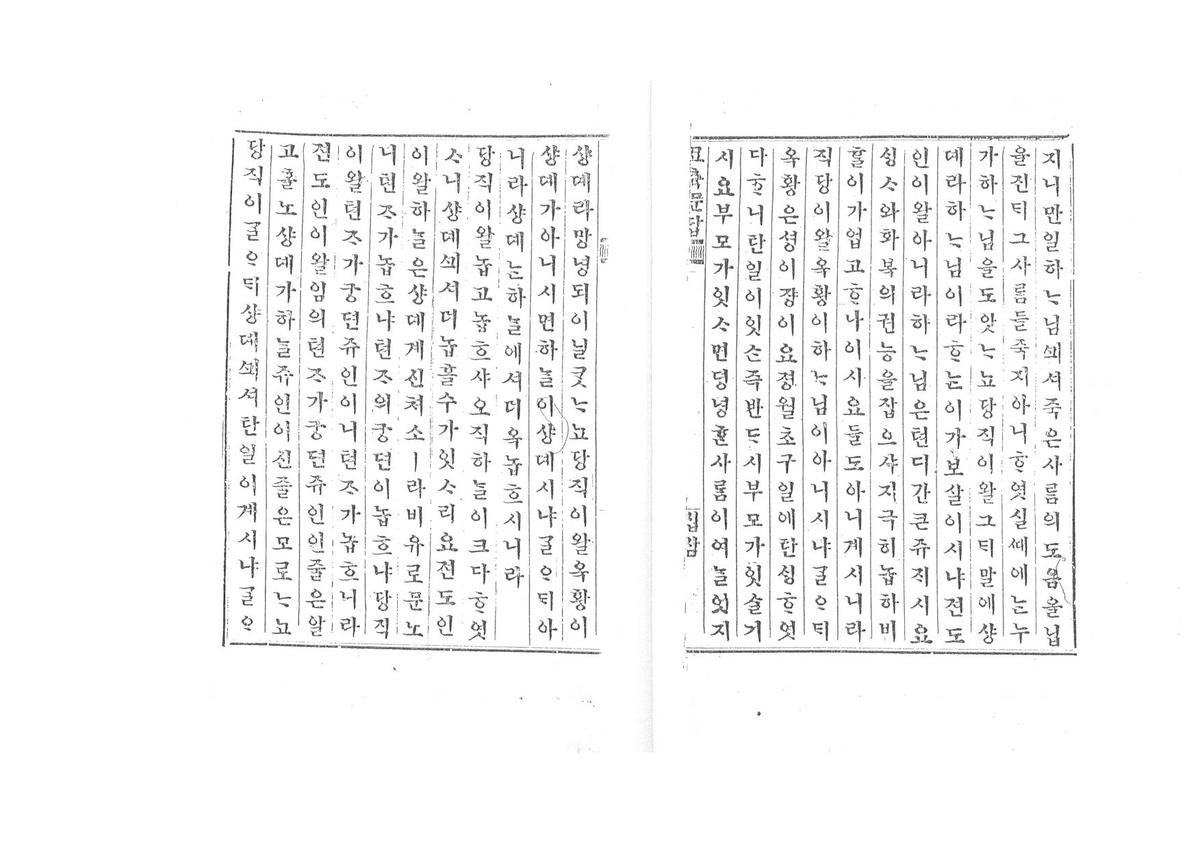 지니만일하ᄂᆞ님ᄭᅴ셔죽은사ᄅᆞᆷ의도음을닙
을진ᄃᆡ그사ᄅᆞᆷ들죽지아니ᄒᆞ엿실ᄯᅢ에ᄂᆞᆫ누
가하ᄂᆞ님을도앗ᄂᆞ뇨당직이왈그ᄃᆡ말에샹
데라하ᄂᆞ님이라ᄒᆞᄂᆞᆫ이가보살이시냐젼도
인이왈아니라하ᄂᆞ님은텬디간큰쥬ᄌᆡ시요
ᄉᆡᆼᄉᆞ와화복의권능을잡으샤지극히놉하비
ᄒᆞᆯ이가업고ᄒᆞ나이시요둘도아니계셔니라
직당이왈옥황이하ᄂᆞ님이아니시냐ᄀᆞᆯᄋᆞᄃᆡ
옥황은셩이쟝이요졍월초구일에탄ᄉᆡᆼᄒᆞ엿
다ᄒᆞ니탄일이잇ᄉᆞᆫ즉반ᄃᆞ시부모가잇슬거
시요부모가잇ᄉᆞ면뎡녕ᄒᆞᆫ사ᄅᆞᆷ이여ᄂᆞᆯ엇지
묘츅문답
십삼
샹데라망녕되이닐ᄏᆞᆺᄂᆞ뇨당직이왈옥황이
샹데가아니시면하ᄂᆞᆯ이샹데시냐ᄀᆞᆯᄋᆞᄃᆡ아
니라샹데ᄂᆞᆫ하ᄂᆞᆯ에셔더욱놉흐시니라
당직이왈놉고놉흐샤오직하ᄂᆞᆯ이크다ᄒᆞ엿
ᄉᆞ니샹데ᄭᅴ셔더놉흘수가잇ᄉᆞ리요젼도인
이왈하ᄂᆞᆯ은샹데계신쳐소ㅣ라비유로문노
니텬ᄌᆞ가놉흐냐텬ᄌᆞ의궁뎐이놉흐냐당직
이왈텬ᄌᆞ가궁뎐쥬인이니텬ᄌᆞ가놉흐니라
젼도인이왈임의텬ᄌᆞ가궁뎐쥬인인줄은알
고ᄒᆞᆯ노샹데가하ᄂᆞᆯ쥬인이신줄은모로ᄂᆞ뇨
당직이ᄀᆞᆯᄋᆞᄃᆡ샹데ᄭᅴ셔탄일이계시냐ᄀᆞᆯᄋᆞ